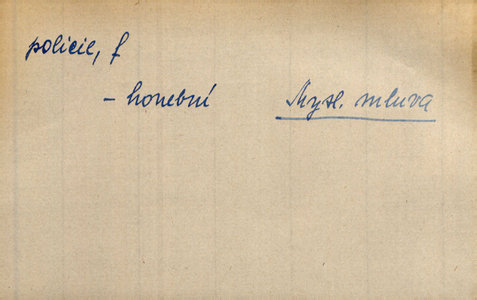 policie, f
– honební Mysl. mluva